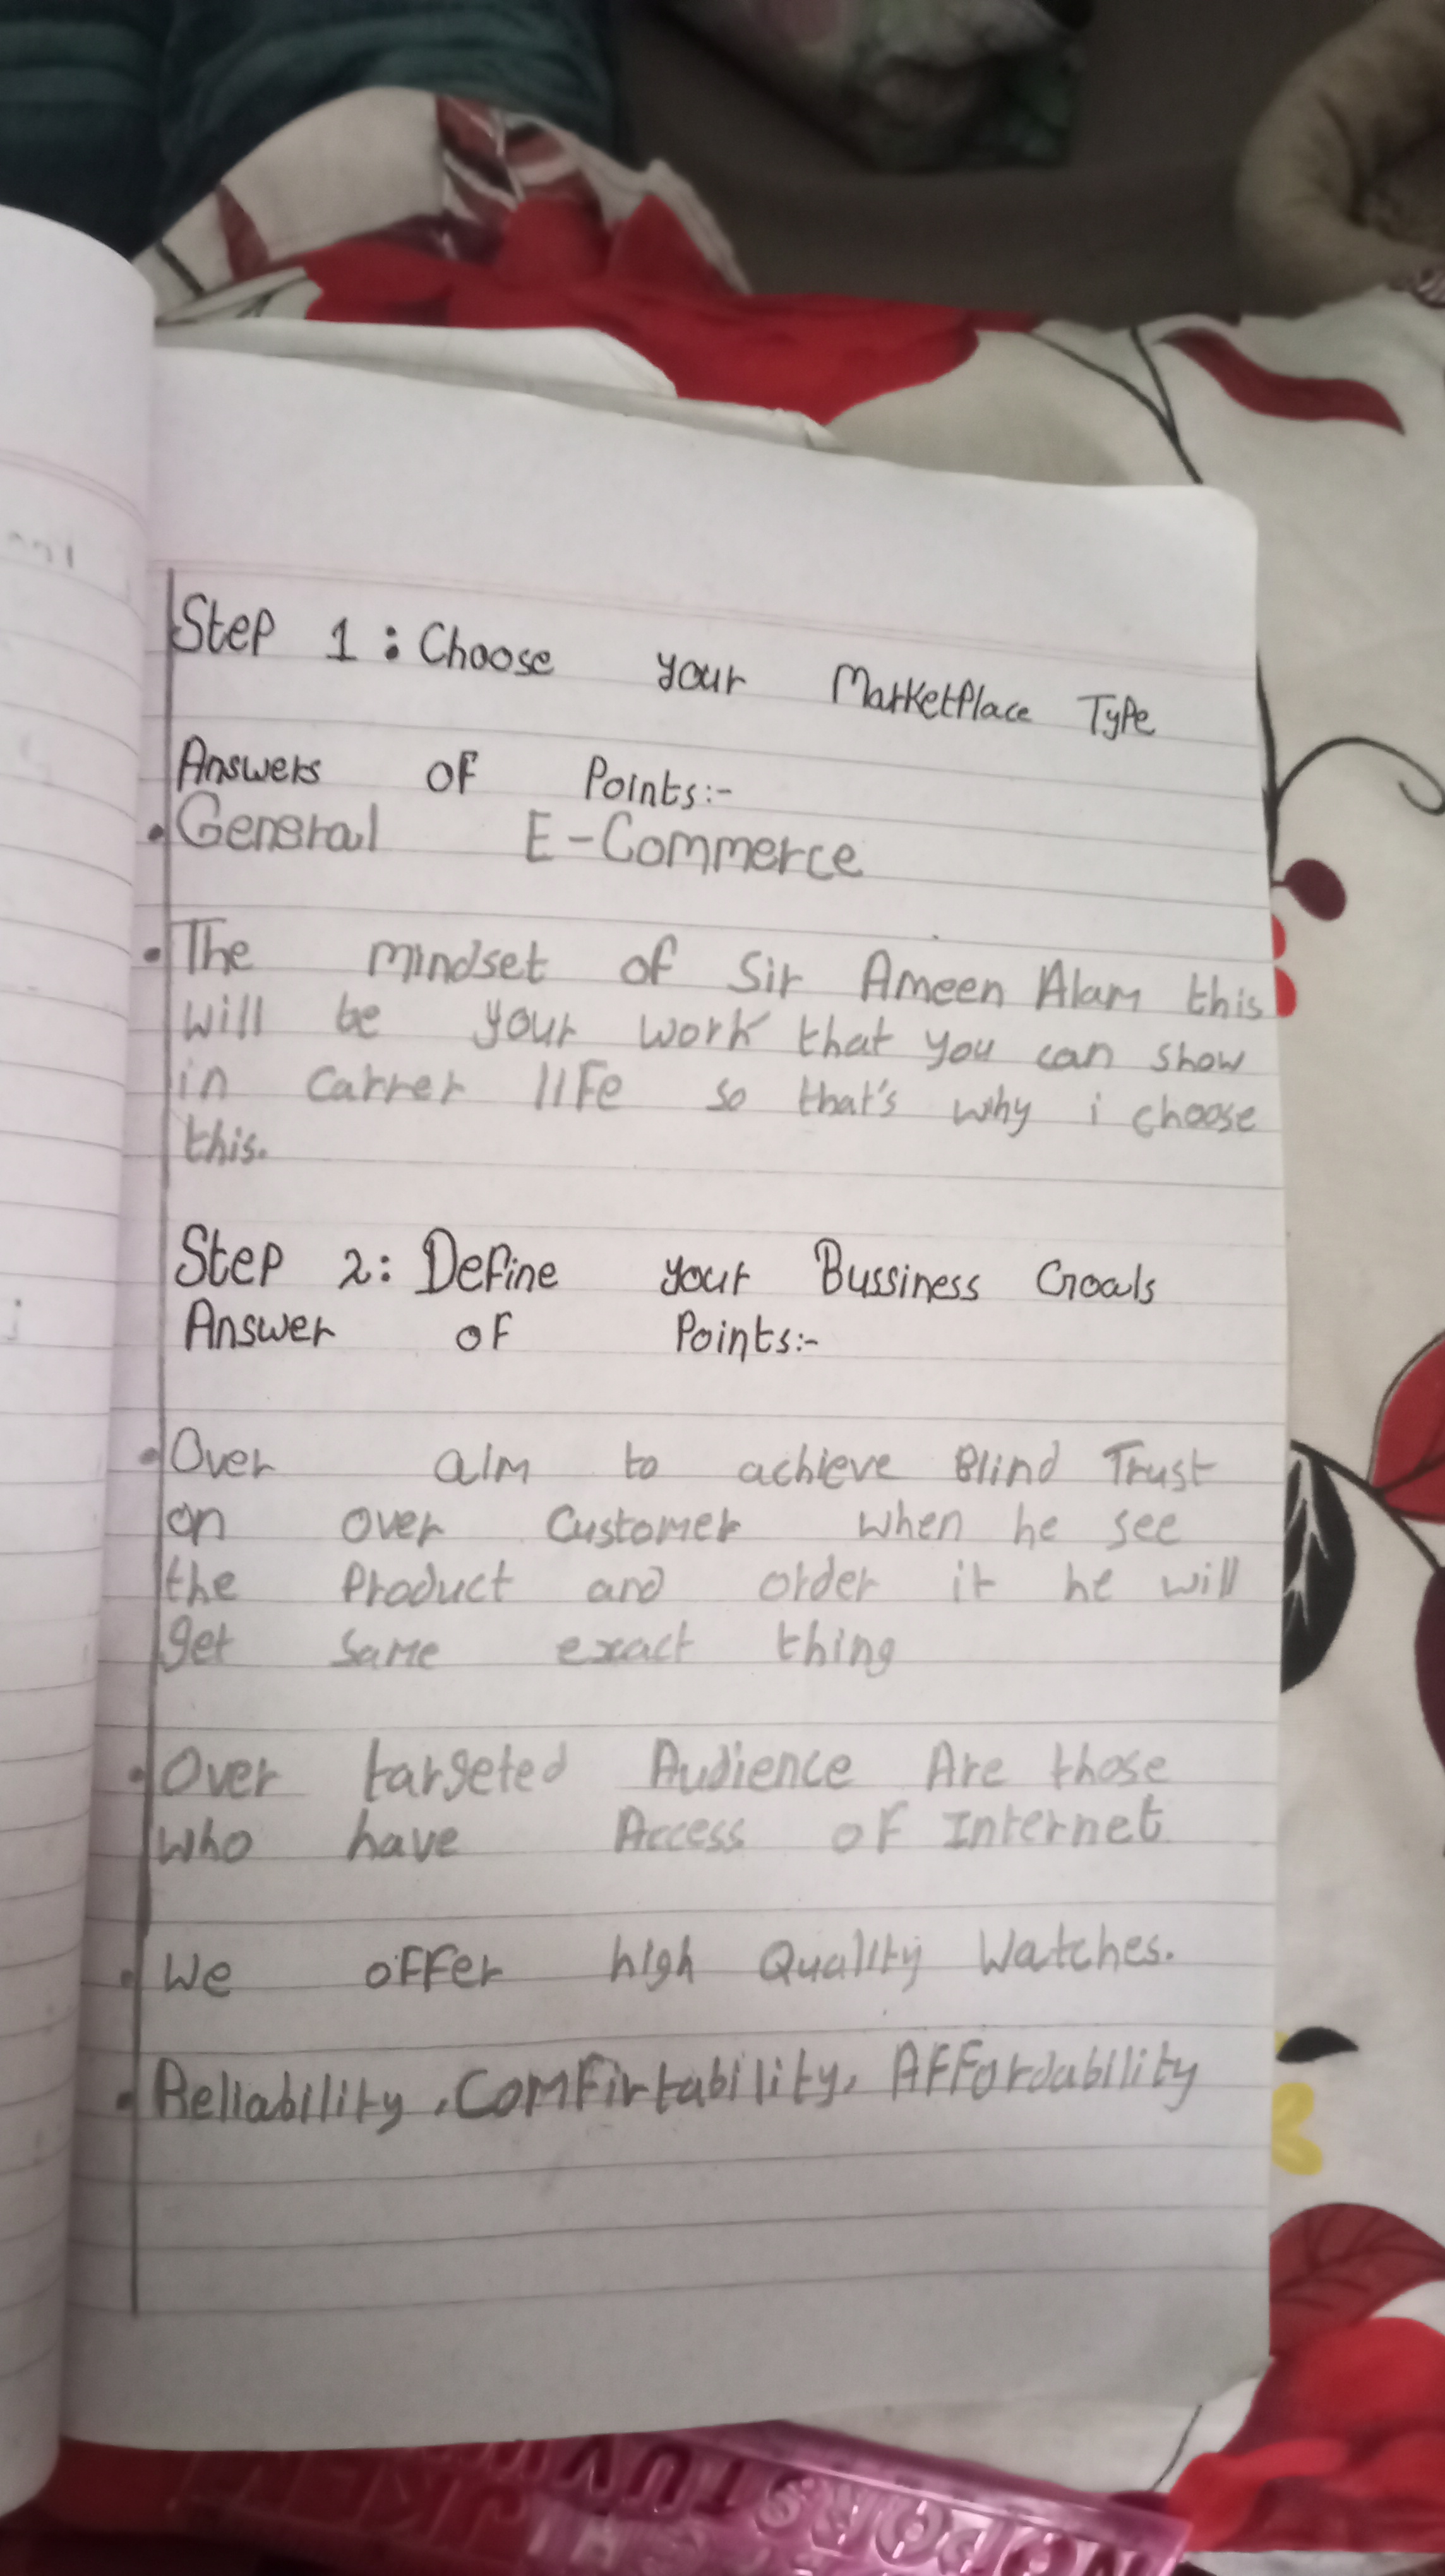 Step 1: Choose your MarketPlace Type
Answers of Points:-
• General E-Commerce
• The mindset of Sir Ameen Alam this
will be your work that you can show
in carrer life so that's why i choose
this.
Step 2: Define your Bussiness Goals
Answer of Points:-
• Over aim to achieve Blind Trust
on over customer when he see
the Product and order it he will
get same exact thing
• Over targeted Audience Are those
who have Access of Internet
• We offer high Quality Watches.
• Reliability, Comfirtability, Affordability
NOPQRSTUVW